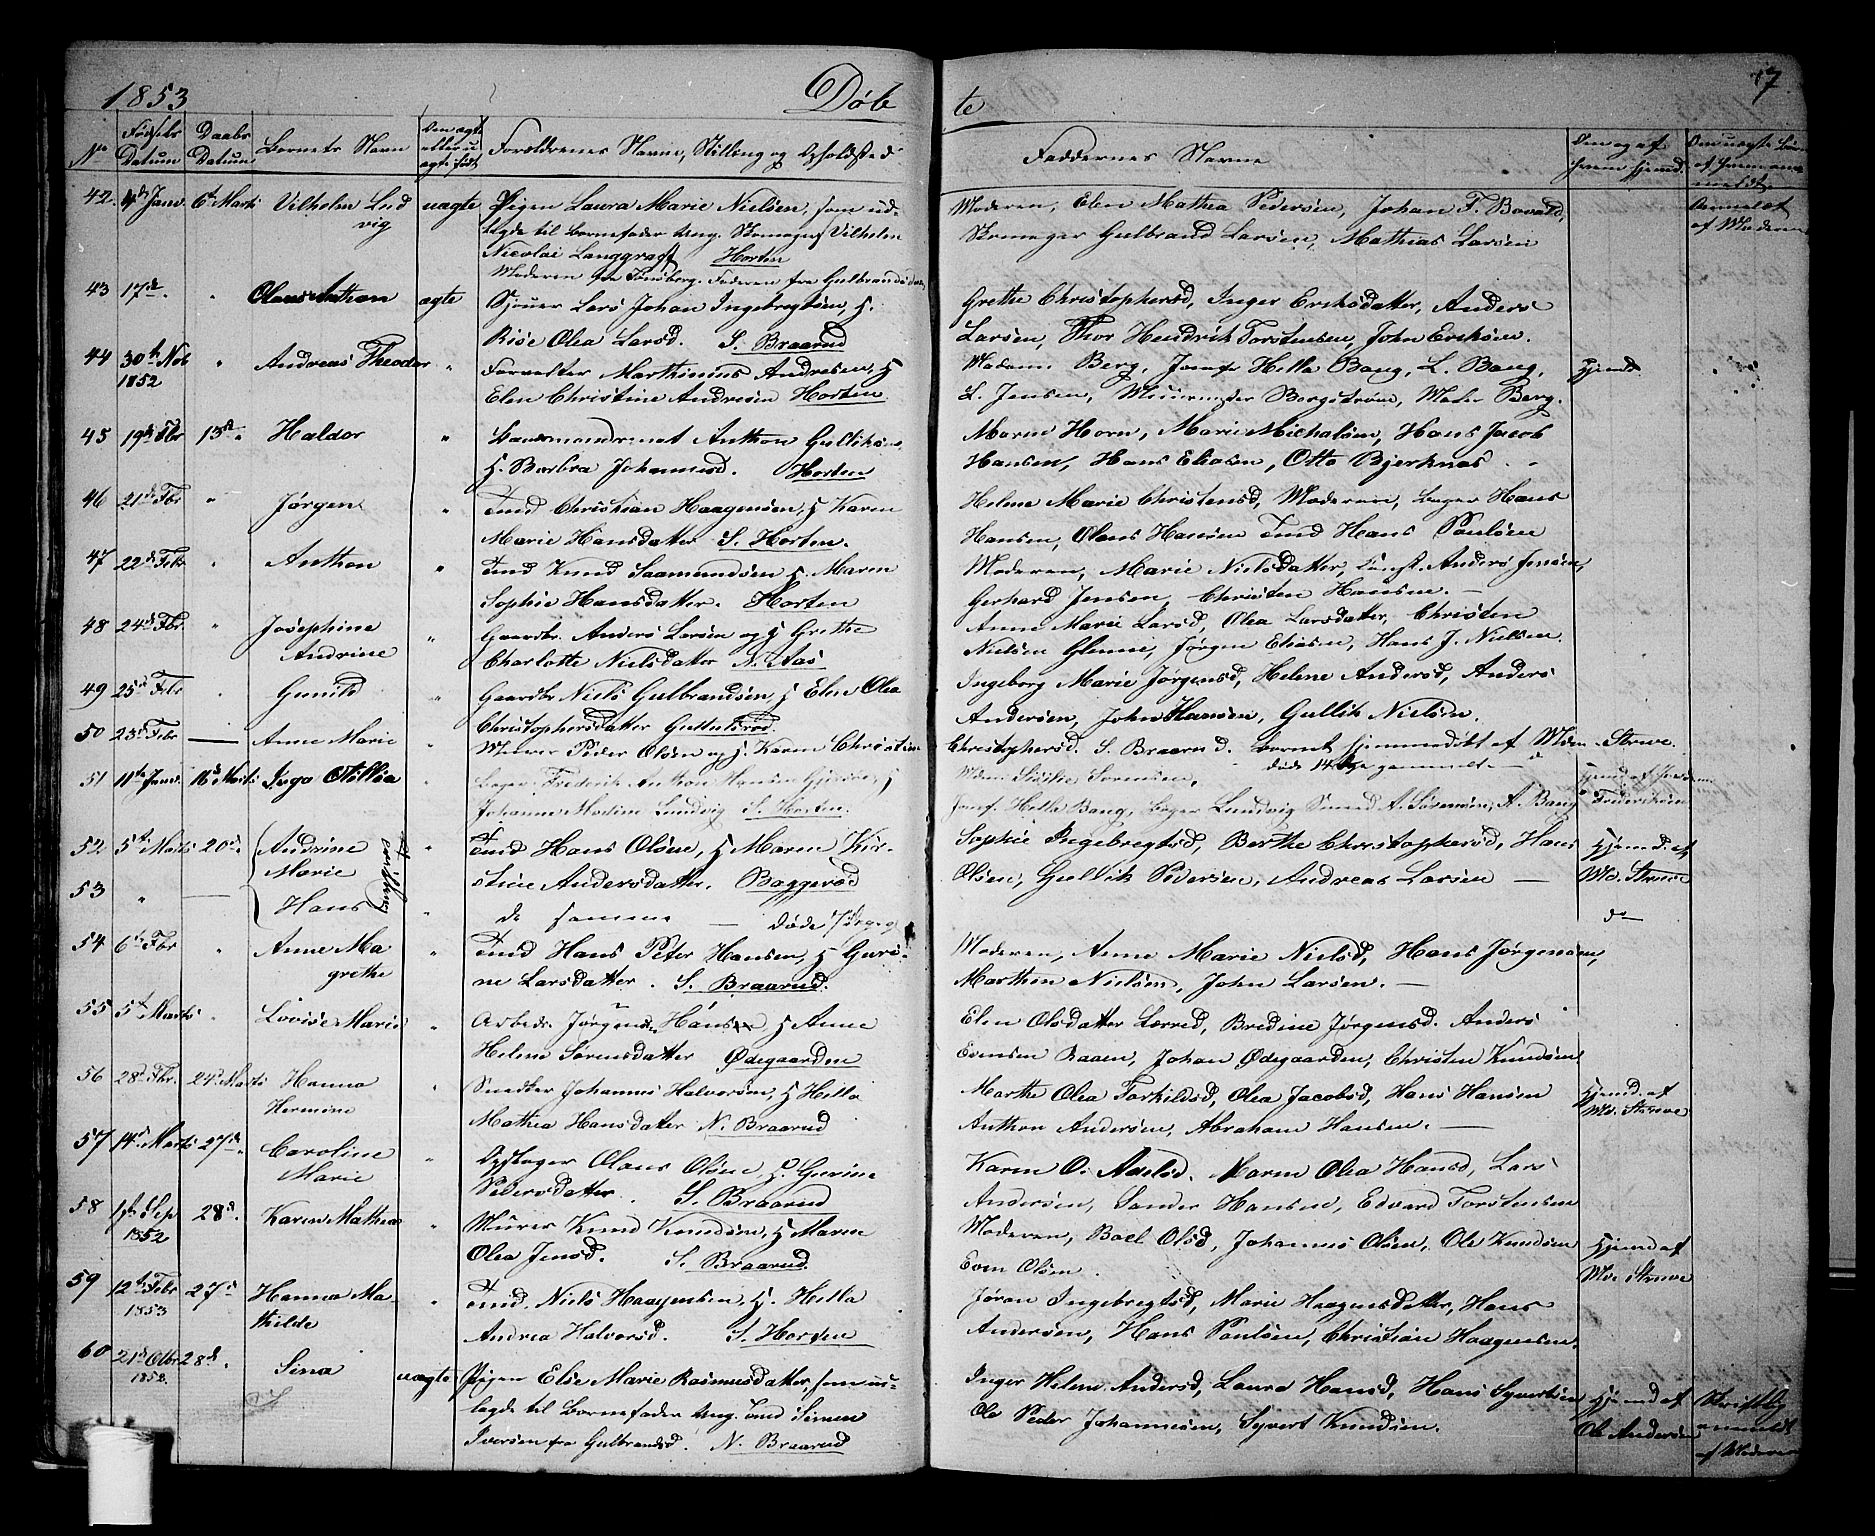 1853 Døbte 17
No Fødsels Datum Daabs Datum Barnets Navn Den ægte eller uægte født Forældrenes Navne, Stilling og Opholdsted Faddernes Navne Om og af hvem hjemd. Om uægte Børn af hvem anmeldt
42. 4de Janv. 6te Marti Vilhelm Ludvig uægte Pigen Laura Marie Nielsen, som ud-
lægde til Barnefader Ung. Skomager Vilhelm
Nicolai Langgraff Horten
Moderen fra Tønsberg. Faderen fra Gulbrandsdalen
Moderen, Elen Mathea Pedersen, Johan F. Bovald,
Skomager Gulbrand Larsen, Mathias Larsen
Anmeldt af Moderen
43 17de " Olaus Anthon ægte Sjouer Lars Johan Ingebregtsen, H.
Risе Olea Larsd. S. Braarud
Grethe Christophersd, Inger Eriksdatter, Anders
Larsen, Thor Hendrik Torstensen, John Eriksen.
44 30te Nob 1852 " Andreas Theodor " Forvalter Marthinius Andresen, H
Elen Christine Andresen Horten
Madam Berg, Jomfr Hella Bang, L. Bang,
L. Jensen, Muurmester Bergstrøm, Mester Berg.
Hjemd.
45 19de Fbr 13de Haldor " Anthon Gulliksen
H. Barbra Johannesd. Horten
Maren Horn, Marie Michalsen, Hans Jacob
Hansen, Hans Eliasen, Otto Bjerknas
46 21de Fbr " Jørgen " Tmd Christian Haagensen, H Karen
Marie Hansdatter S. Horten.
Helene Marie Christensd, Moderen, Bager Hans
Hansen, Olaus Hansen Tmd Hans Poulsen
47 22de Febr " Anthon " Tmd Knud Saamundsen H. Maren
Sophie Hansdatter. Horten
Moderen, Marie Nielsdatter, Anders Jensen,
Gerhard Jensen, Christen Hansen.
48 24de Fbr. " Josephine Andrine " Gaardbr. Anders Larsen og H Grethe
Charlotte Nielsdatter N. Aas
Anne Marie Larsd, Olea Larsdatter, Christen
Nielsen Glenne, Jørgen Eliasen, Hans J. Nielsen.
49 25de Febr " Gunild " Gaardbr Niels Gulbrandsen H Elen Olea
Christophersdatter
Ingeborg Marie Jørgensd, Helene Andersd, Anders
Andersen, John Hansen, Gullik Nielsen.
50 23de Febr — Anne Marie " Murer Peder Olsen og H. Karen Christine
Christophersd. S. Braarud. Barnet hjemmedøbt af Mdm Struve.
døde 14 Dage gammelt
51 11te Janv. 16de Marti Inga Ottillia " Bager Frederik Anthon Hansen H
Johanne Modine Lundvig S. Horten.
Mdm Sørensen,
Jomf. Hella Bang, Bager Lundvig Smed A. Sørensen, A. Bang
Hjemd af Frederiksen
52 5te Marts 20de Andrine Marie Tvillinger " Tmd Hans Olsen, H Maren Kir-
stine Andersdatter. Baggerød
Sophie Ingebregtsd, Berthe Christophersd, Hans
Olsen, Gullik Pedersen, Andreas Larsen —
Hjemd. af Md. Struve
53 " — Hans " de samme — døde 7 Dage g
do
54 6te Fbr " Anne Magrethe " Tmd Hans Peter Hansen, H Guri-
ne Larsdatter. S. Braarud.
Moderen, Anne Marie Nielsd, Hans Jørgensen,
Marthen Nielsen, John Larsen. —
55 5te Marts " Lovise Marie " Arbeds. Jørgen Hansen H Anne
Helene Sørensdatter Ødegaarden
Elen Olsdatter Lerred, Bredine Jørgensd. Anders
Evensen Raaen, Johan Ødegaarden, Christen Knudsen
56 28de Fbr. 24de Marts Hanna Hermine " Snedker Johannes Halvorsen, H Hella
Mathea Hansdatter N. Braarud
Marthe Olea Torkildsd, Olea Jacobsd, Hans Hansen
Anthon Andersen, Abraham Hansen. —
Hjemd. af Md. Struve
57 14de Marts 27de Caroline Marie " Olaus Olsen H. Gurine
Pedersdatter. S. Braarud
Karen O. Axelsd. Maren Olea Hansd, Lars
Andersen, Sander Hansen, Edvard Torstensen
58 1ste Sep 1852 28de. Karen Mathea " Murer Knud Knudsen, H Maren
Olea Jensd. S. Braarud.
Moderen, Boel Olsd, Johannes Olsen, Ole Knudsen
Even Olsen.
Hjemd af Md. Struve
59 12te Febr 1853 27de Hanna Mathilde " Tmd. Niels Haagensen, H. Hella
Andrea Halvorsd. S. Horten
Jøran Ingebregtsd, Marie Haagensdatter, Hans
Andersen, Hans Poulsen, Christian Haagensen.
60 21de Otbr 1852. 28de. Sina uægte Pigen Elise Marie Rasmusdatter, som ud-
lægde til Barnefader Ung. Tmd Simen
Iversen fra Gulbrandsd. N. Braarud
Inger Helene Andersd, Laura Hansd, Hans Syvertsen
Ole Peder Johannesen, Syvert Knudsen.
Hjemd af Ole Andersen
Skriftlig anmeldt af Moderen